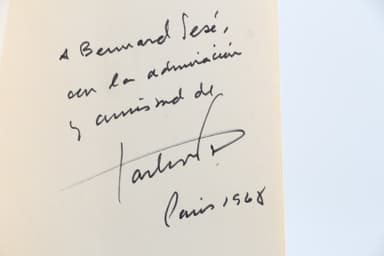 A Bernard Sesé,
con la admiración
y amistad de
Paris 1968